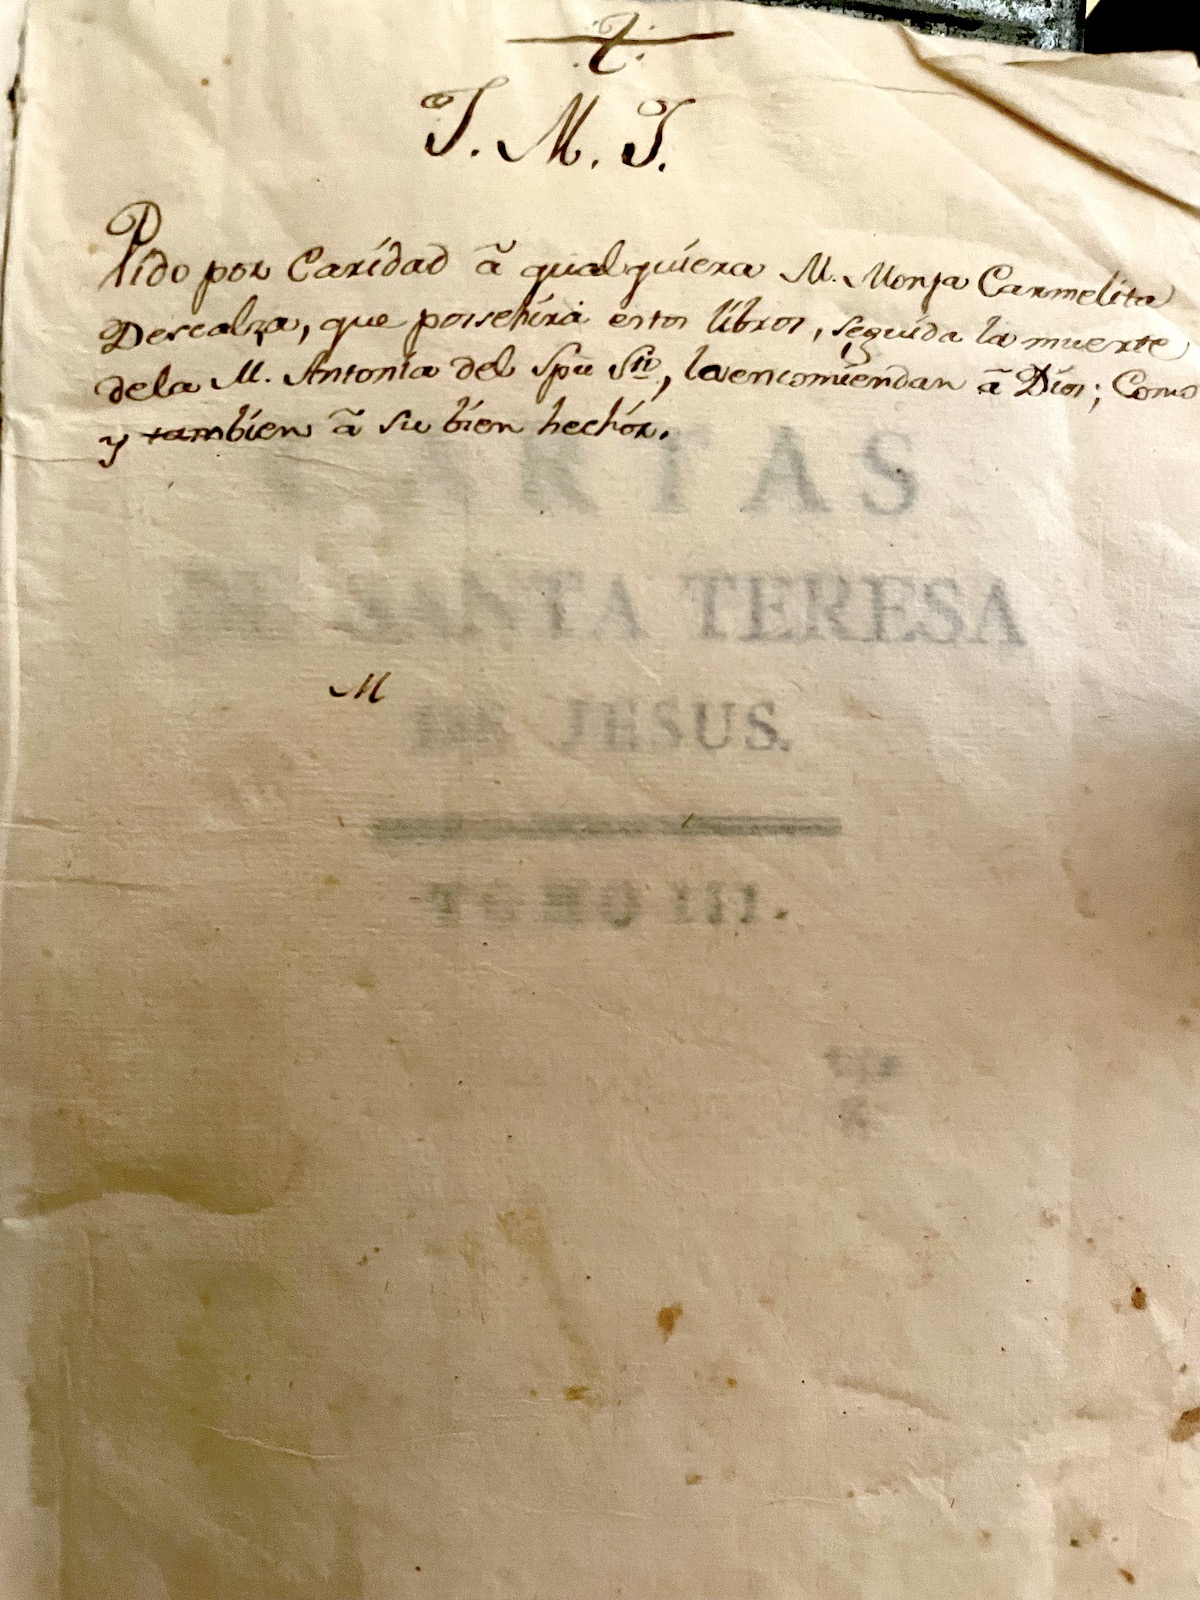 J. M. J.
Pido por Caridad ã qualquiera M. Monja Carmelita
Descalza, que possehirà estos libros, seguida la muerte
dela M. Antonia del Spũ Sto, la encomiendan ã Dios; Como
y tambien ã su bien hechor.
CARTAS
DE SANTA TERESA
M
DE JESUS.
TOMO III.